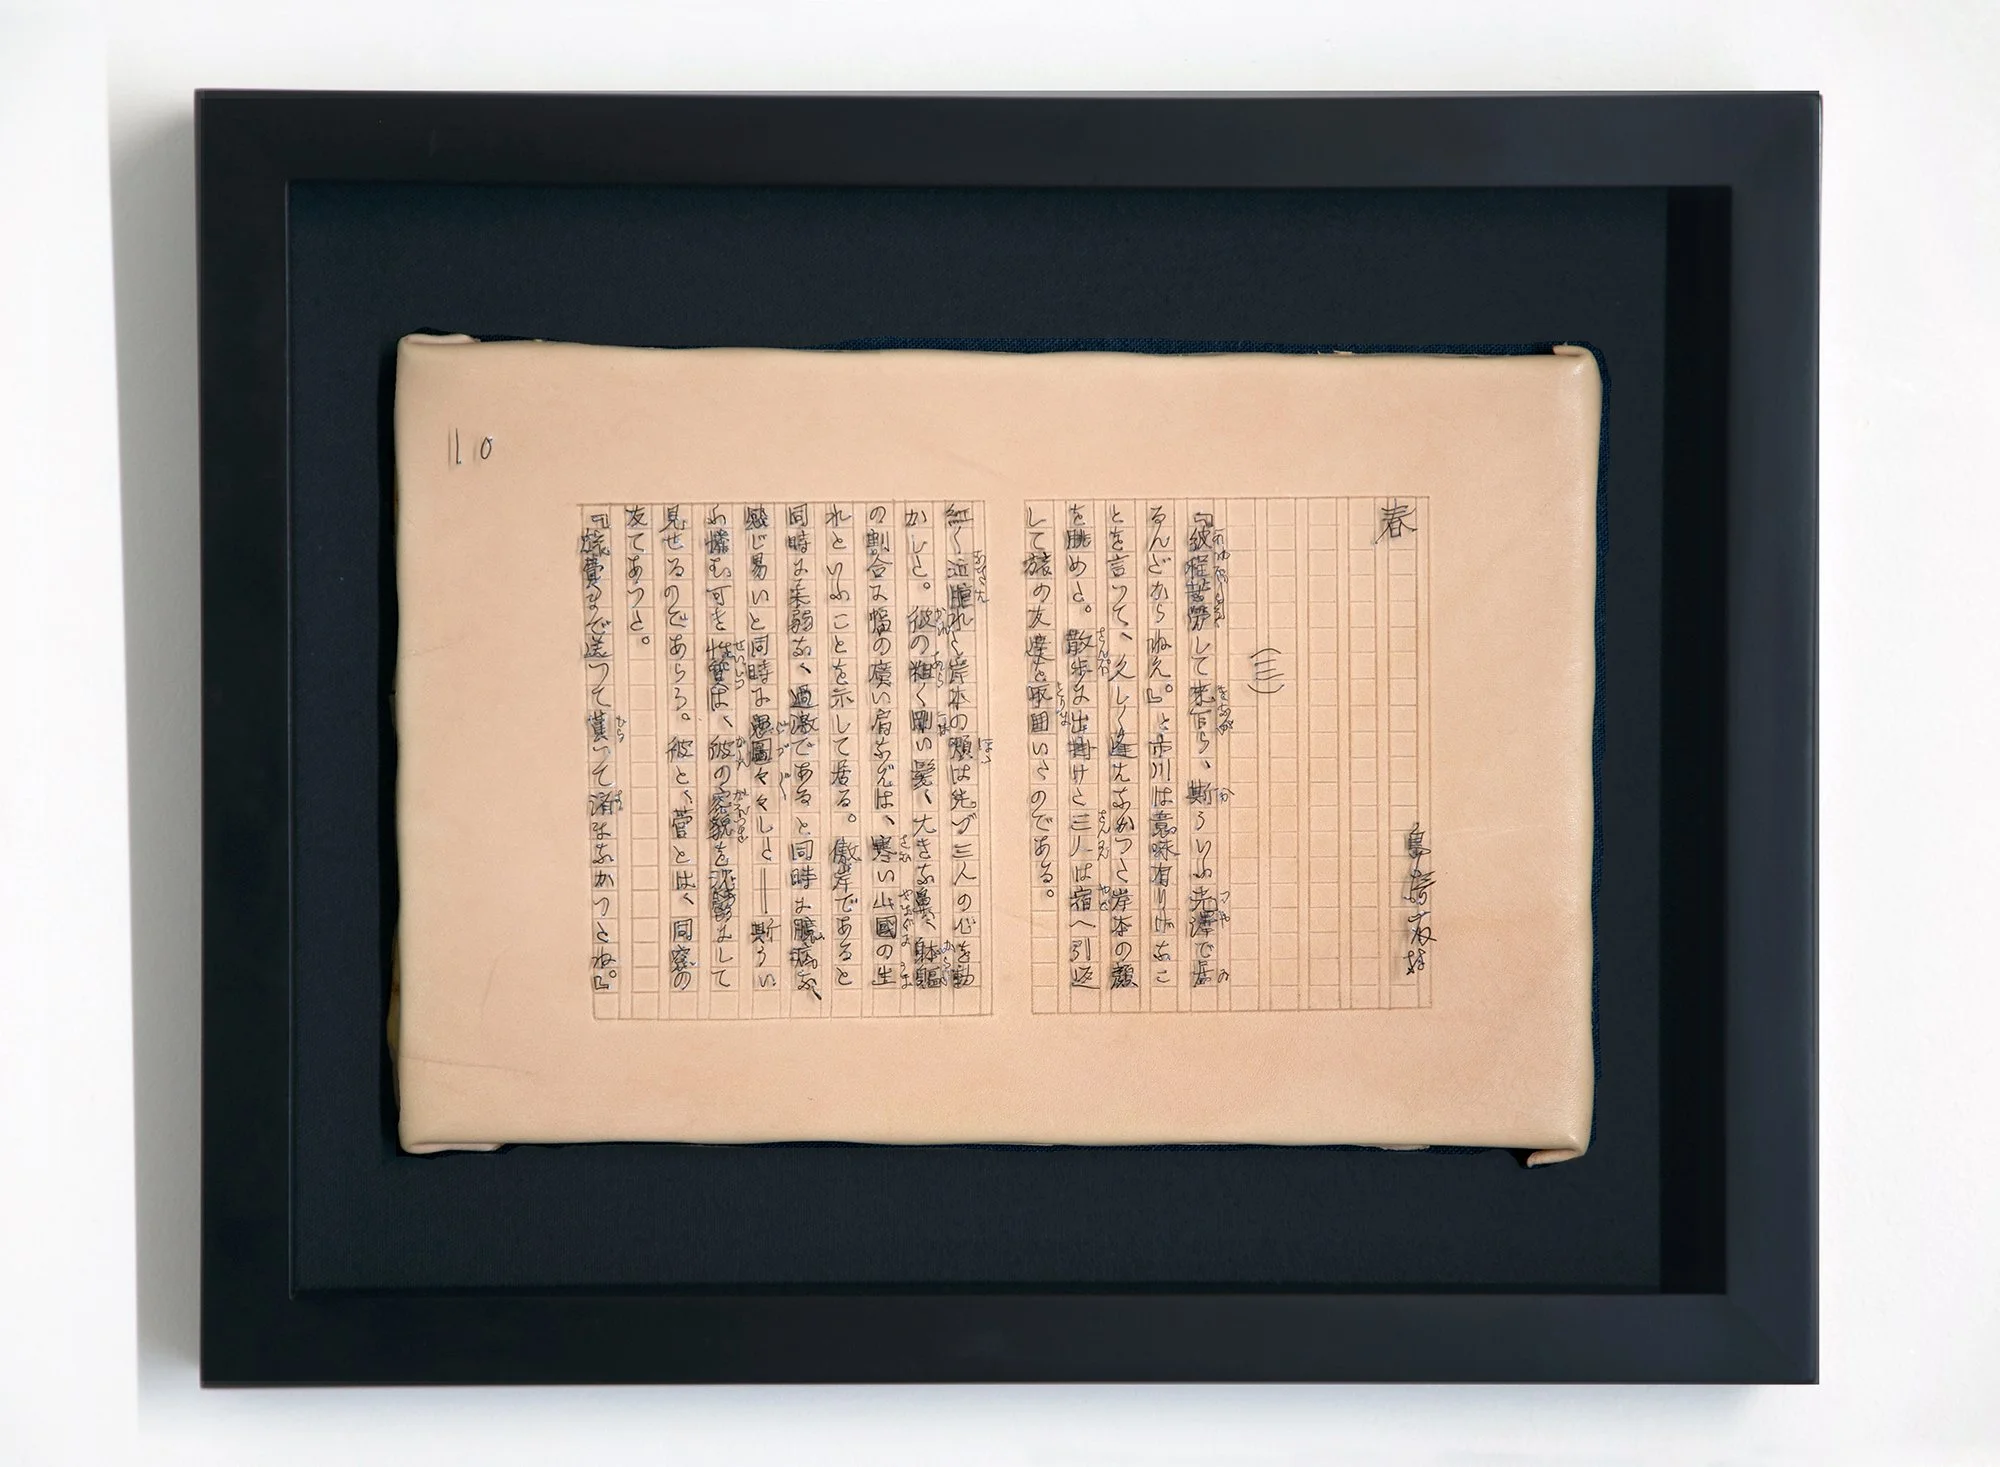 110
春
島崎藤村
(三)
『彼程苦勞して來乍ら、斯ういふ光澤で居
るんだからねえ。』と市川は意味有りげなこ
とを言つて、久しく逢えなかつた岸本の顏
を眺めた。散歩に出掛けた三人は宿へ引返
して旅の友達を取囲いたのである。
紅く腫れた岸本の頬は先づ三人の心を動
かした。彼の粗く剛い髪、大きな鼻、身軀
の割合に幅の廣い肩なぞは、寒い山國の生
れといふことを示して居る。傲岸であると
同時に柔弱な、過激であると同時に臆病な、
感じ易いと同時に愚圖々々した――斯うい
ふ憐む可き性質は、彼の容貌を沈鬱にして
見せるのであらう。彼と、菅とは、同窓の
友であつた。
『旅費まで送つて貰つて済まなかつたね。』